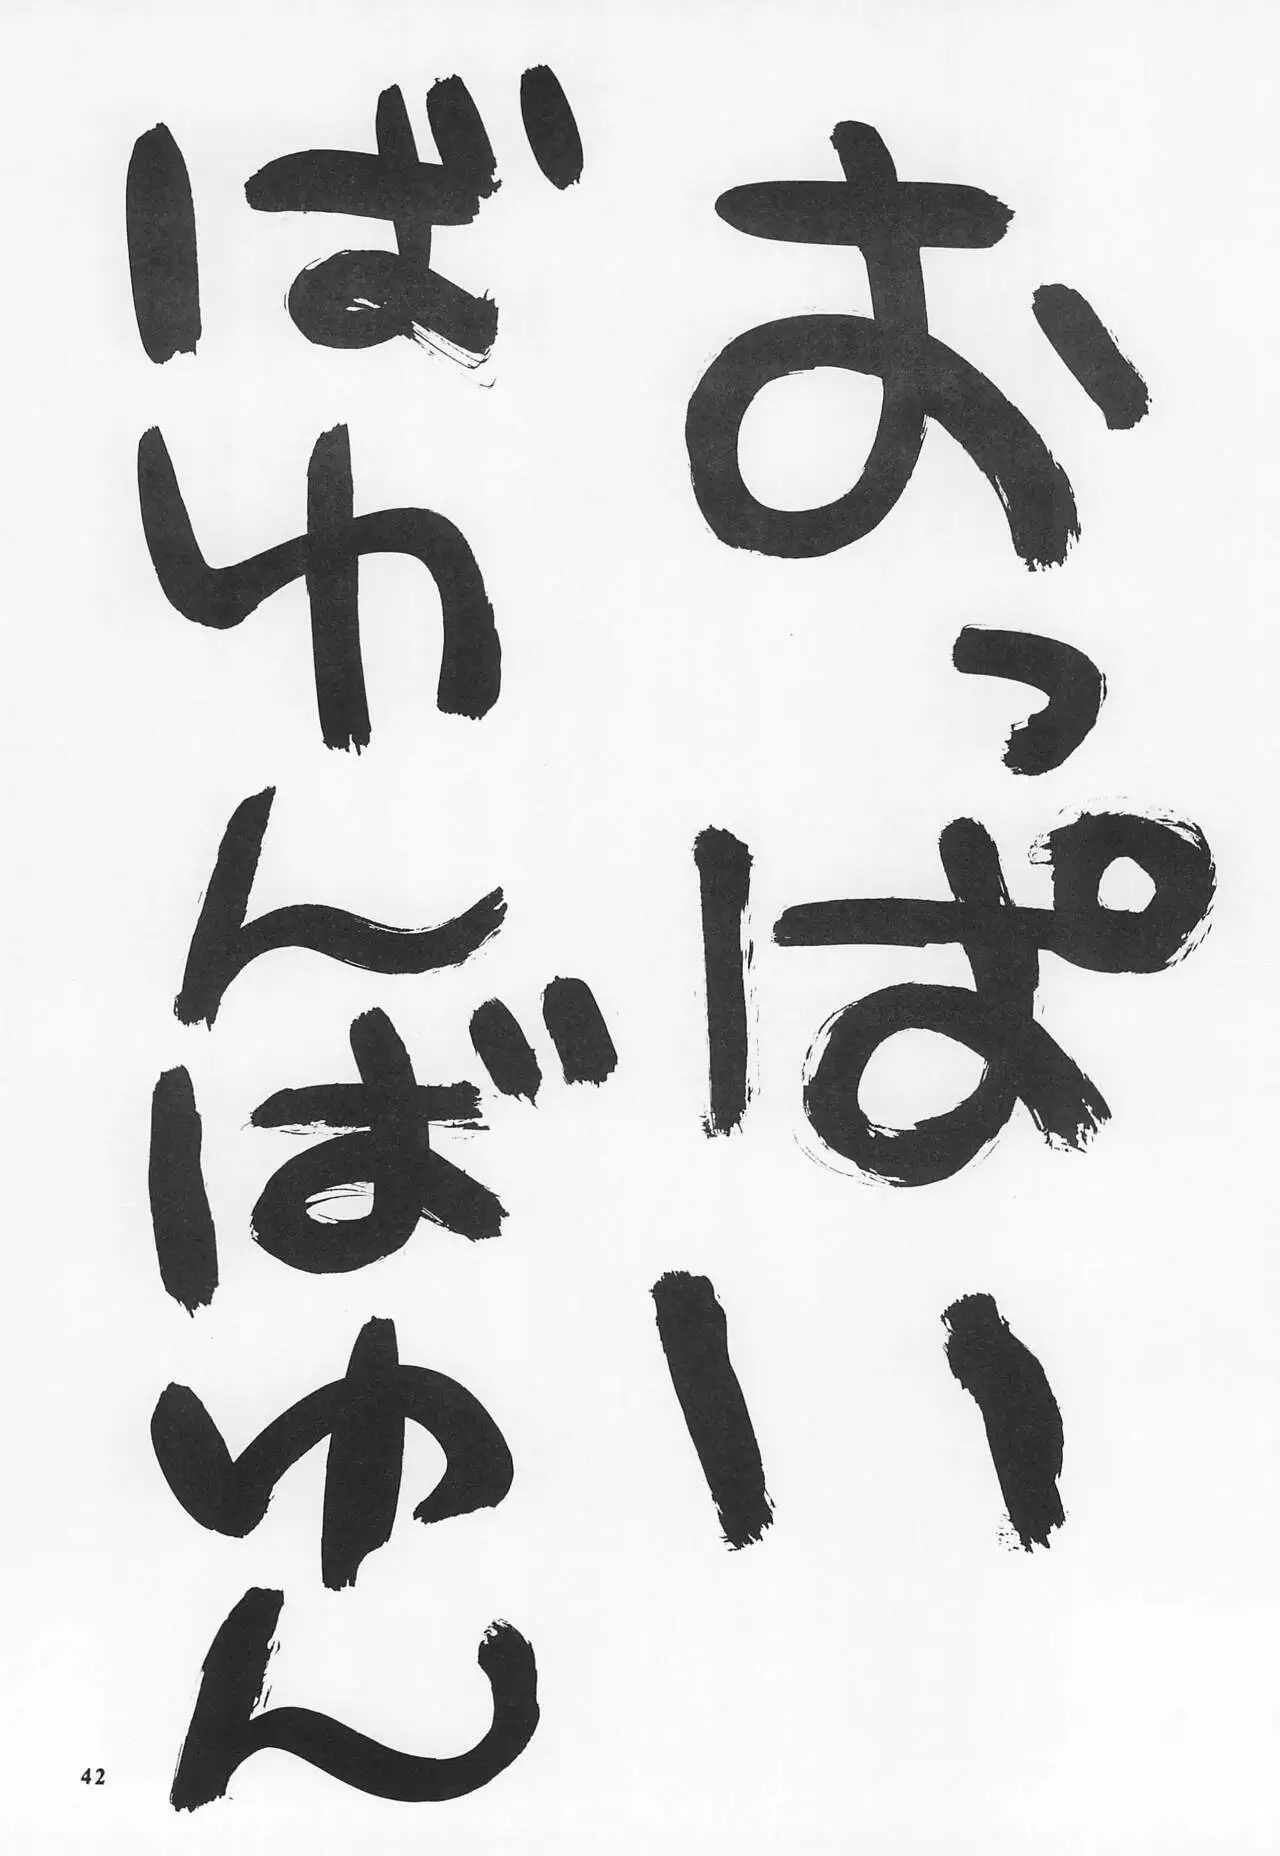 おっぱい
ばゆんばゆん
42